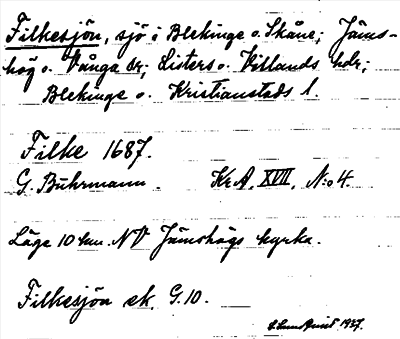 Filkesjön, sjö i Blekinge o. Skåne; Jäms-
hög o. Vånga sr; Listers o. Villands hdr;
Blekinge o. Kristianstads l.
Filke 1687.
G. Buhrmann. Kr.A. XVII, N:o 4.
Läge 10 km. NV Jämshögs kyrka.
Filkesjön ek. G.10.
1927.